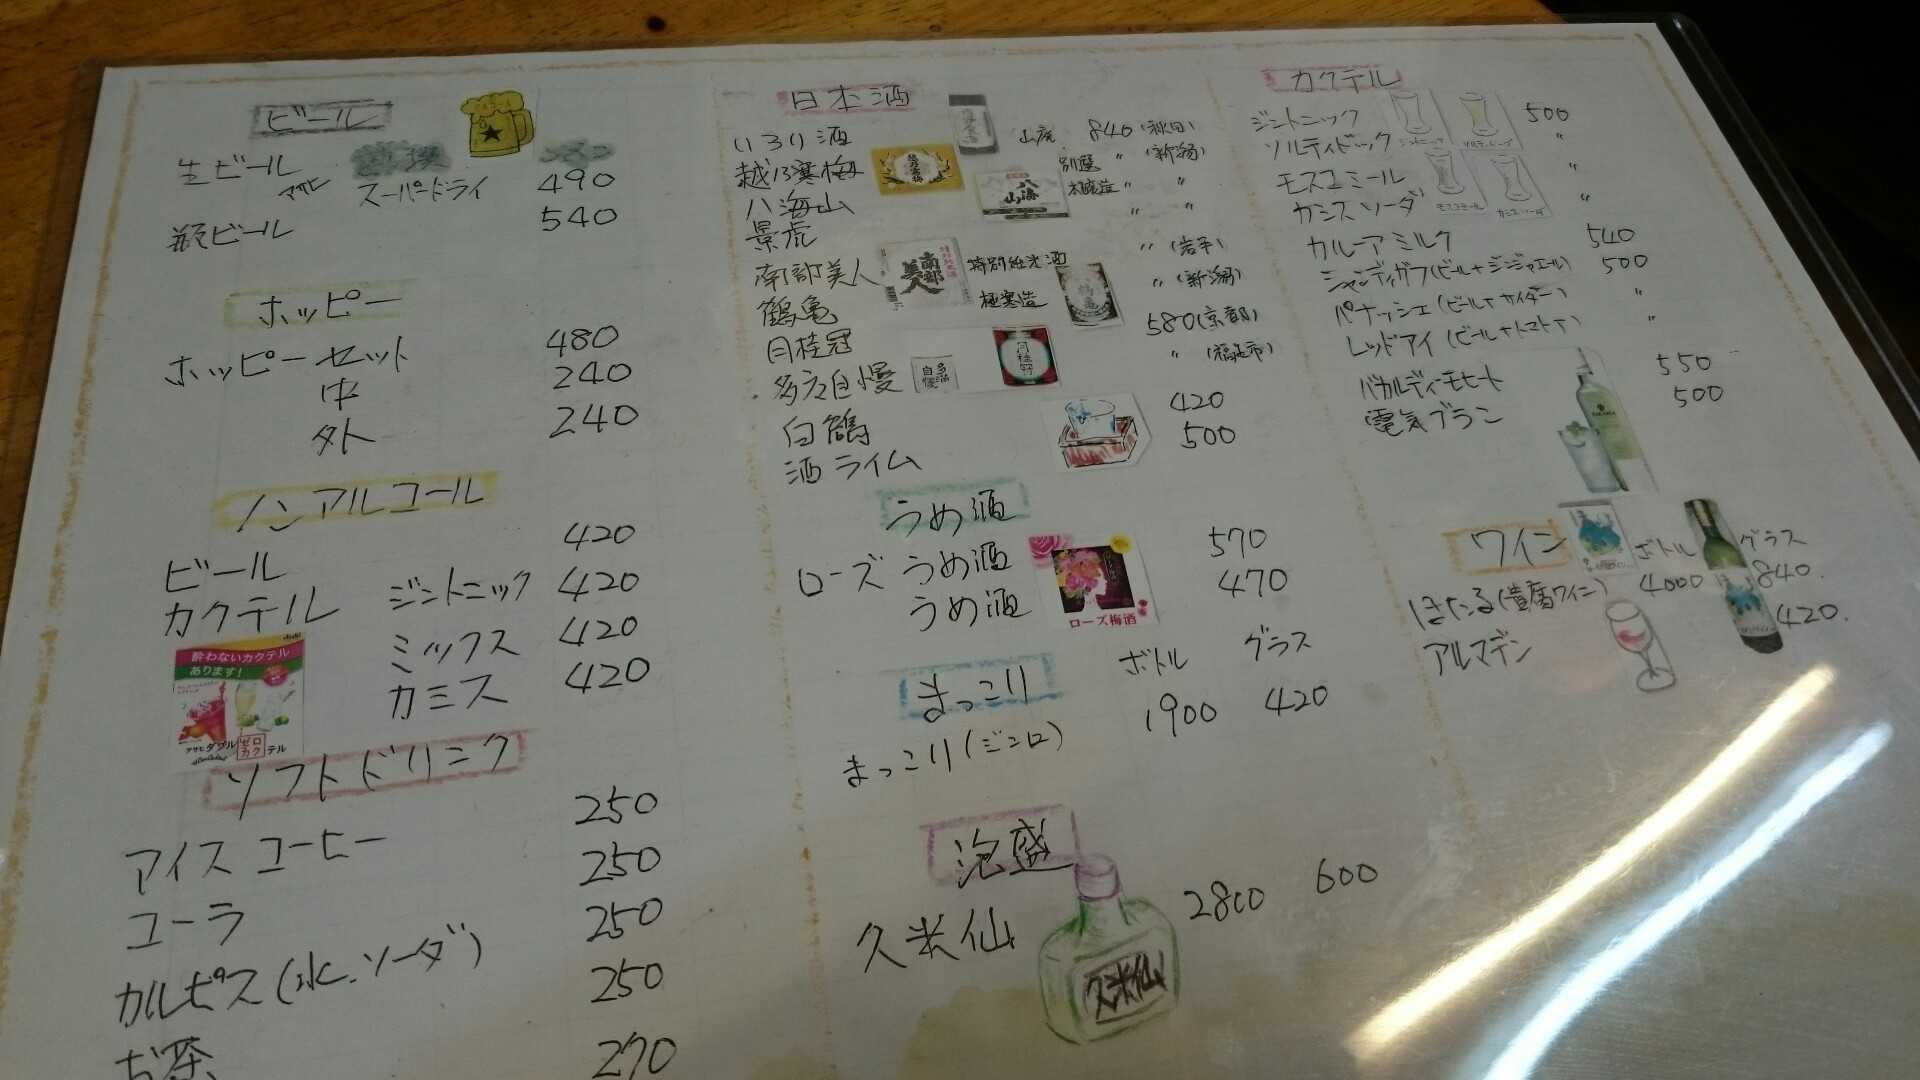 ビール
生ビール
アサヒ スーパードライ 490
瓶ビール 540
ホッピー
ホッピーセット 480
中 240
外 240
ノンアルコール
ビール 420
カクテル ジントニック 420
ミックス 420
カミス 420
酔わないカクテル
あります!
アサヒダブルゼロカクテル
ソフトドリンク
アイスコーヒー 250
コーラ 250
カルピス(水、ソーダ) 250
お茶 250
270
日本酒
いろり酒 山廃 840(秋田)
越乃寒梅 別撰 〃(新潟)
八海山 本醸造 〃 〃
景虎 〃 〃
南部美人 特別純米酒 〃(岩手)
鶴亀 極寒造 〃(新潟)
月桂冠 580(京都)
多満自慢 〃(福生市)
白鶴 420
酒ライム 500
八海山
南部美人
月桂冠
うめ酒
ローズうめ酒 570
うめ酒 470
ローズ梅酒
まっこり ボトル グラス
まっこり(ジンロ) 1900 420
泡盛
久米仙 2800 600
久米仙
カクテル
ジントニック 500
ソルティドック 〃
モスコミール 〃
カシスソーダ 〃
カルーアミルク 540
シャンディガフ(ビール+ジンジャエール) 500
パナッシェ(ビール+サイダー) 〃
レッドアイ(ビール+トマト) 〃
バカルディーモヒート 550
電気ブラン 500
ワイン ボトル グラス
ほたる(貴腐ワイン) 4000 840.
アルマデン 420.